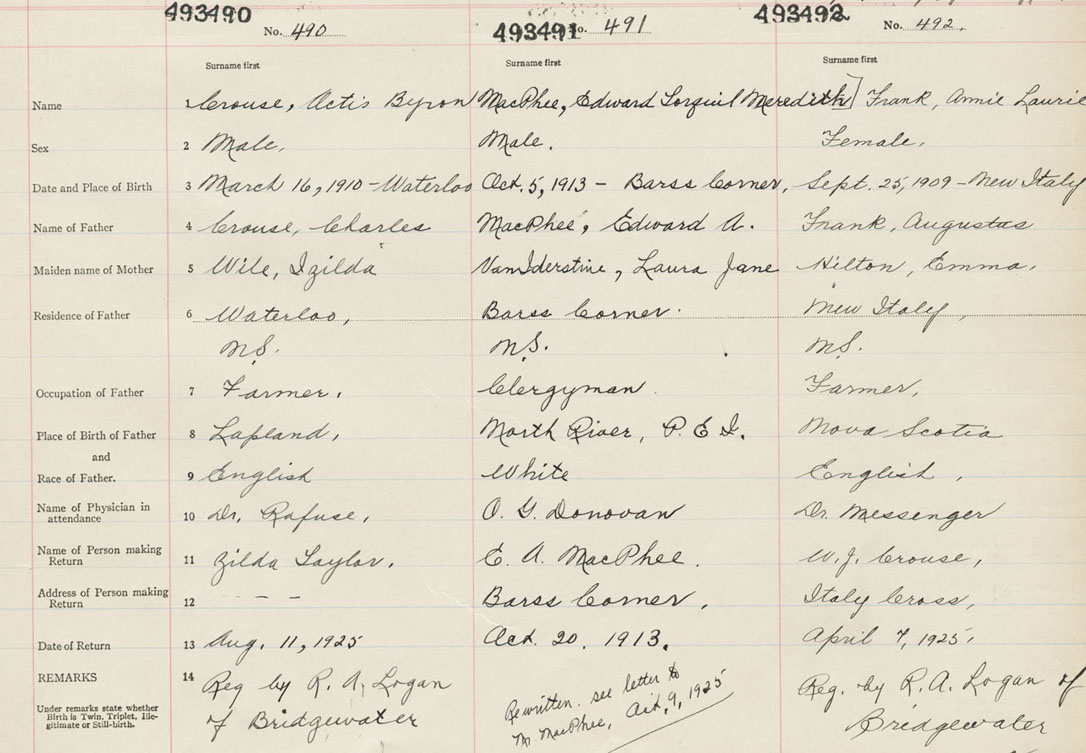 493490 493491 493492
No. 490 No. 491 No. 492.
Surname first Surname first Surname first
Name 1 Crouse, Actis Byron MacPhee, Edward Torquil Meredith] Frank, Annie Laurie
Sex 2 Male. Male. Female.
Date and Place of Birth 3 March 16, 1910 - Waterloo Oct. 5, 1913 - Barss Corner, Sept. 25, 1909 - New Italy
Name of Father 4 Crouse, Charles MacPhee, Edward A. Frank, Augustas
Maiden name of Mother 5 Wile, Izilda VanIderstine, Laura Jane Hilton, Emma.
Residence of Father 6 Waterloo, Barss Corner. New Italy,
N.S. N.S. N.S.
Occupation of Father 7 Farmer. Clergyman Farmer,
Place of Birth of Father 8 Lapland, North River, P. E. I. Nova Scotia
and
Race of Father. 9 English White English,
Name of Physician in attendance 10 Dr. Rafuse, O. G. Donovan Dr. Messenger
Name of Person making Return 11 Zilda Taylor, E. A. MacPhee. W. J. Crouse,
Address of Person making Return 12 - - Barss Corner, Italy Cross,
Date of Return 13 Aug. 11, 1925 Oct. 20. 1913. April 7, 1925.
REMARKS 14 Reg by R. A. Logan Rewritten. see letter to Reg. by R. A. Logan of
Under remarks state whether
Birth is Twin, Triplet, Ille-
gitimate or Still-birth.
of Bridgewater Mr. MacPhee, Oct. 9, 1925 Bridgewater